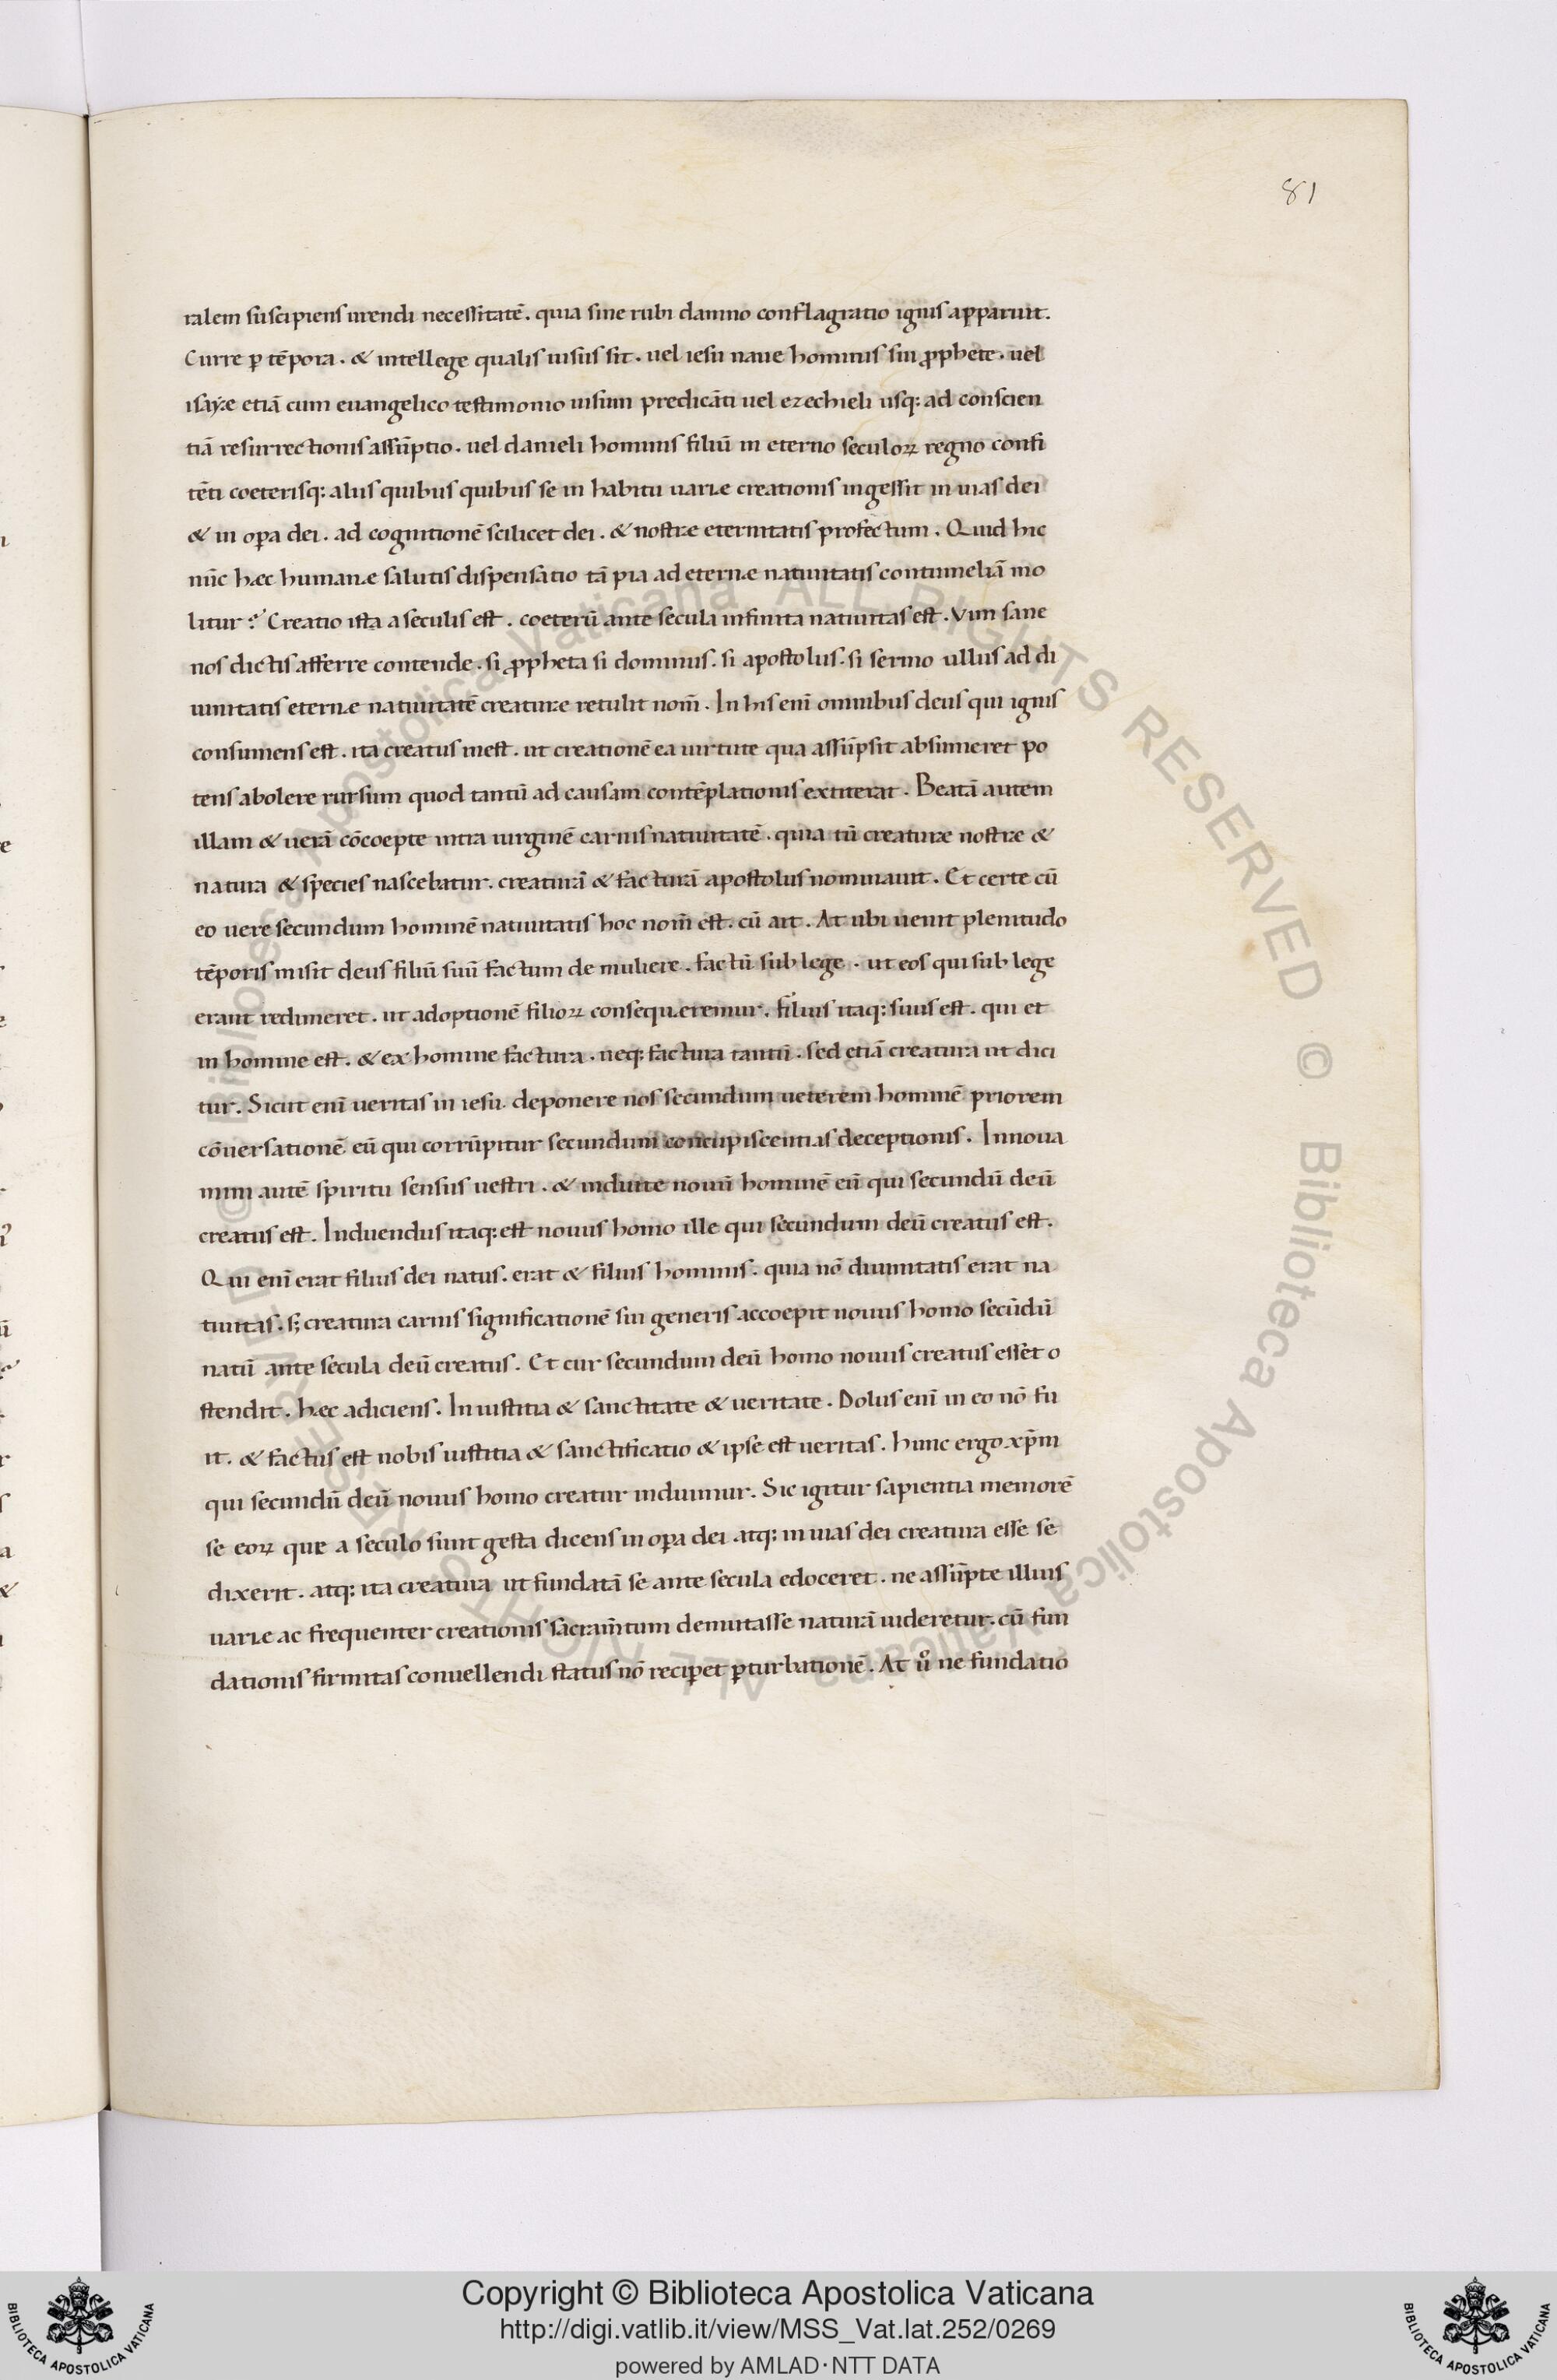 81
ralem suscipiens urendi necessitatē. quia sine rubi damno conflagratio ignis apparuit.
Curre ꝑ tēpora. & intellege qualis uisus sit. uel iesu naue hominis sui ꝓphete. uel
isaẏæ etiā cum euangelico testimonio uisum predicāti uel ezechieli usq: ad conscien
tiā resurrectionis assūptio. uel danieli hominis filiū in eterno seculoꝝ regno confi
tēti coeterisq: aliis quibus quibus se in habitu uariæ creationis ingessit in uias dei
& in oꝑa dei. ad cognitionē scilicet dei. & nostræ eternitatis profectum. Quid hic
nūc hæc humanæ salutis dispensatio tā pia ad eternæ natiuitatis contumeliā mo
litur? Creatio ista a seculis est. coeterū ante secula infinita natiuitas est. Vim sane
nos dictis afferre contende. si ꝓpheta si dominus. si apostolus. si sermo ullus ad di
uinitatis eternæ natiuitatē creaturæ retulit nom̄. In his eni omnibus deus qui ignis
consumens est. ita creatus inest. ut creationē ea uirtute qua assūpsit absumeret po
tens abolere rursum quod tantū ad causam contēplationis extiterat. Beatā autem
illam & uerā cōcoepte intra uirginē carnis natiuitatē. quia tū creaturæ nostræ &
natura & species nascebatur. creaturā & facturā apostolus nominauit. Et certe cū
eo uere secundum hominē natiuitatis hoc nom̄ est. cū ait. At ubi uenit plenitudo
tēporis misit deus filiū suū factum de muliere. factū sub lege. ut eos qui sub lege
erant redimeret. ut adoptionē filioꝝ consequæremur. filius itaq: suus est. qui et
in homine est. & ex homine factura. neq: factura tantū. sed etiā creatura ut dici
tur. Sicut enī ueritas in iesu. deponere nos secundum ueterem hominē priorem
cōuersationē eū qui corrūpitur secundum concupiscentias deceptionis. Innoua
mini autē spiritu sensus uestri. & induite nouū hominē eū qui secundū deū
creatus est. Induendus itaq: est nouus homo ille qui secundum deū creatus est.
Qui enī erat filius dei natus. erat & filius hominis. quia nō diuinitatis erat na
tiuitas. s; creatura carnis significationē sui generis accoepit nouus homo secūdū
natū ante secula deū creatus. Et cur secundum deū homo nouus creatus esset o
stendit. hæc adiciens. In iustitia & sanctitate & ueritate. Dolus enī in eo nō fu
it. & factus est nobis iustitia & sanctificatio & ipse est ueritas. hunc ergo xp̄m
qui secundū deū nouus homo creatur induimur. Sic igitur sapientia memorē
se eoꝝ quæ a seculo sunt gesta dicens in oꝑa dei atq: in uias dei creatura esse se
dixerit. atq: ita creatura ut fundatā se ante secula edoceret. ne assūpte illius
uariæ ac frequenter creationis sacram̄tum demutasse naturā uideretur. cū fun
dationis firmitas conuellendi status nō reciꝑet ꝑturbationē. At uº ne fundatio
© Biblioteca Apostolica Vaticana ALL RIGHTS RESERVED
© Biblioteca Apostolica Vaticana ALL RIGHTS RESERVED
Copyright © Biblioteca Apostolica Vaticana
http://digi.vatlib.it/view/MSS_Vat.lat.252/0269
powered by AMLAD·NTT DATA
BIBLIOTECA APOSTOLICA VATICANA
BIBLIOTECA APOSTOLICA VATICANA